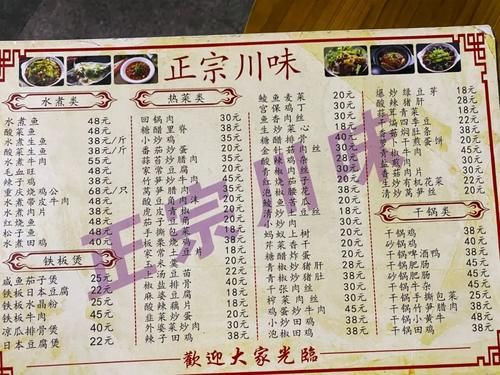 正宗川味
水煮类
水煮鱼 48元
酸菜鱼 48元
水煮生鱼 38元/斤
酸菜生鱼 38元/斤
水煮牛肉 55元
毛血旺 48元
辣子鸡 38元
重庆烧鸡公 68元/只
水煮带皮牛肉 48元
水煮肉片 38元
红烧鱼 48元
松子鱼 48元
水煮田鸡 40元
铁板煲
咸鱼茄子煲 25元
铁板日本豆腐 22元
铁板水晶粉 25元
铁板牛肉 45元
凉瓜排骨煲 40元
日本豆腐煲 22元
热菜类
回锅肉 30元
糖醋里脊 38元
小炒鸡 35元
番茄炒蛋 20元
蒜苔炒腊肉 35元
家常豆腐 20元
竹笋炒牛肉
莴笋腊肉
酸豆角肉沫
虎皮青椒
茄子豆角
手撕包菜
板栗烧鸡
家常土豆片
玉米羹
上汤豆苗 22元
椒盐排骨 40元
麻婆豆腐 18元
酸辣藕片 18元
韭菜炒蛋 20元
外婆菜炒肉 30元
辣子田鸡 38元
鲮鱼麦菜 20元
宫保鸡丁 30元
鱼香肉丝
生炒菜心
糖醋排骨 40元
金针菇肉丝 30元
酸辣鸡杂 30元
青椒肉丝
红烧茄子
泡椒腰花
鲮鱼苦瓜
清炒土豆丝
小炒肉
蚂蚁上树 20元
芹菜香干 20元
青椒炒猪肝 28元
青椒炒猪肚 38元
千张肉丝 30元
榨菜肉丝 30元
鸡蛋炒牛肉 45元
小炒田鸡 38元
青椒田鸡 38元
爆炒绿豆芽 18元
酸辣猪肝 28元
蒜茸青菜 18元
干煸四季豆 22元
茶树菇焖肚条 38元
萝卜干煎蛋
青椒牛肉
盐煎肉
香干炒肉
生炒有机花菜 22元
清炒莴笋丝 20元
干锅类
干锅鸡 38元
砂锅鸡 40元
干锅啤酒鸭 38元
干锅肥肠 45元
砂锅肥肠 45元
干锅牛杂 45元
干锅手撕包菜 25元
干锅竹笋腊肉 38元
干锅小黄牛 48元
干锅田鸡 38元
歡迎大家光臨
正宗川味